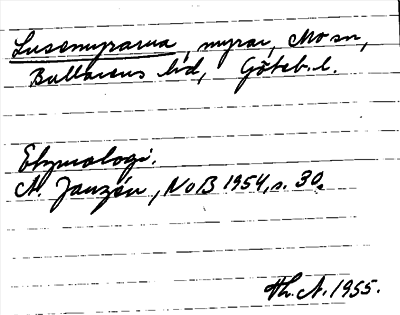 Lusemyrarna, myrar, Mo sn,
Bullarens hd, Göteb. l.
Etymologi.
A. Janzén, NoB 1954, s. 30.
Th. A. 1955.